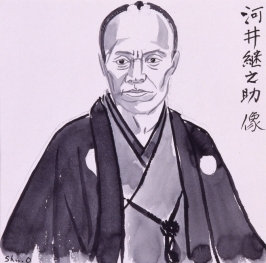 河井継之助像